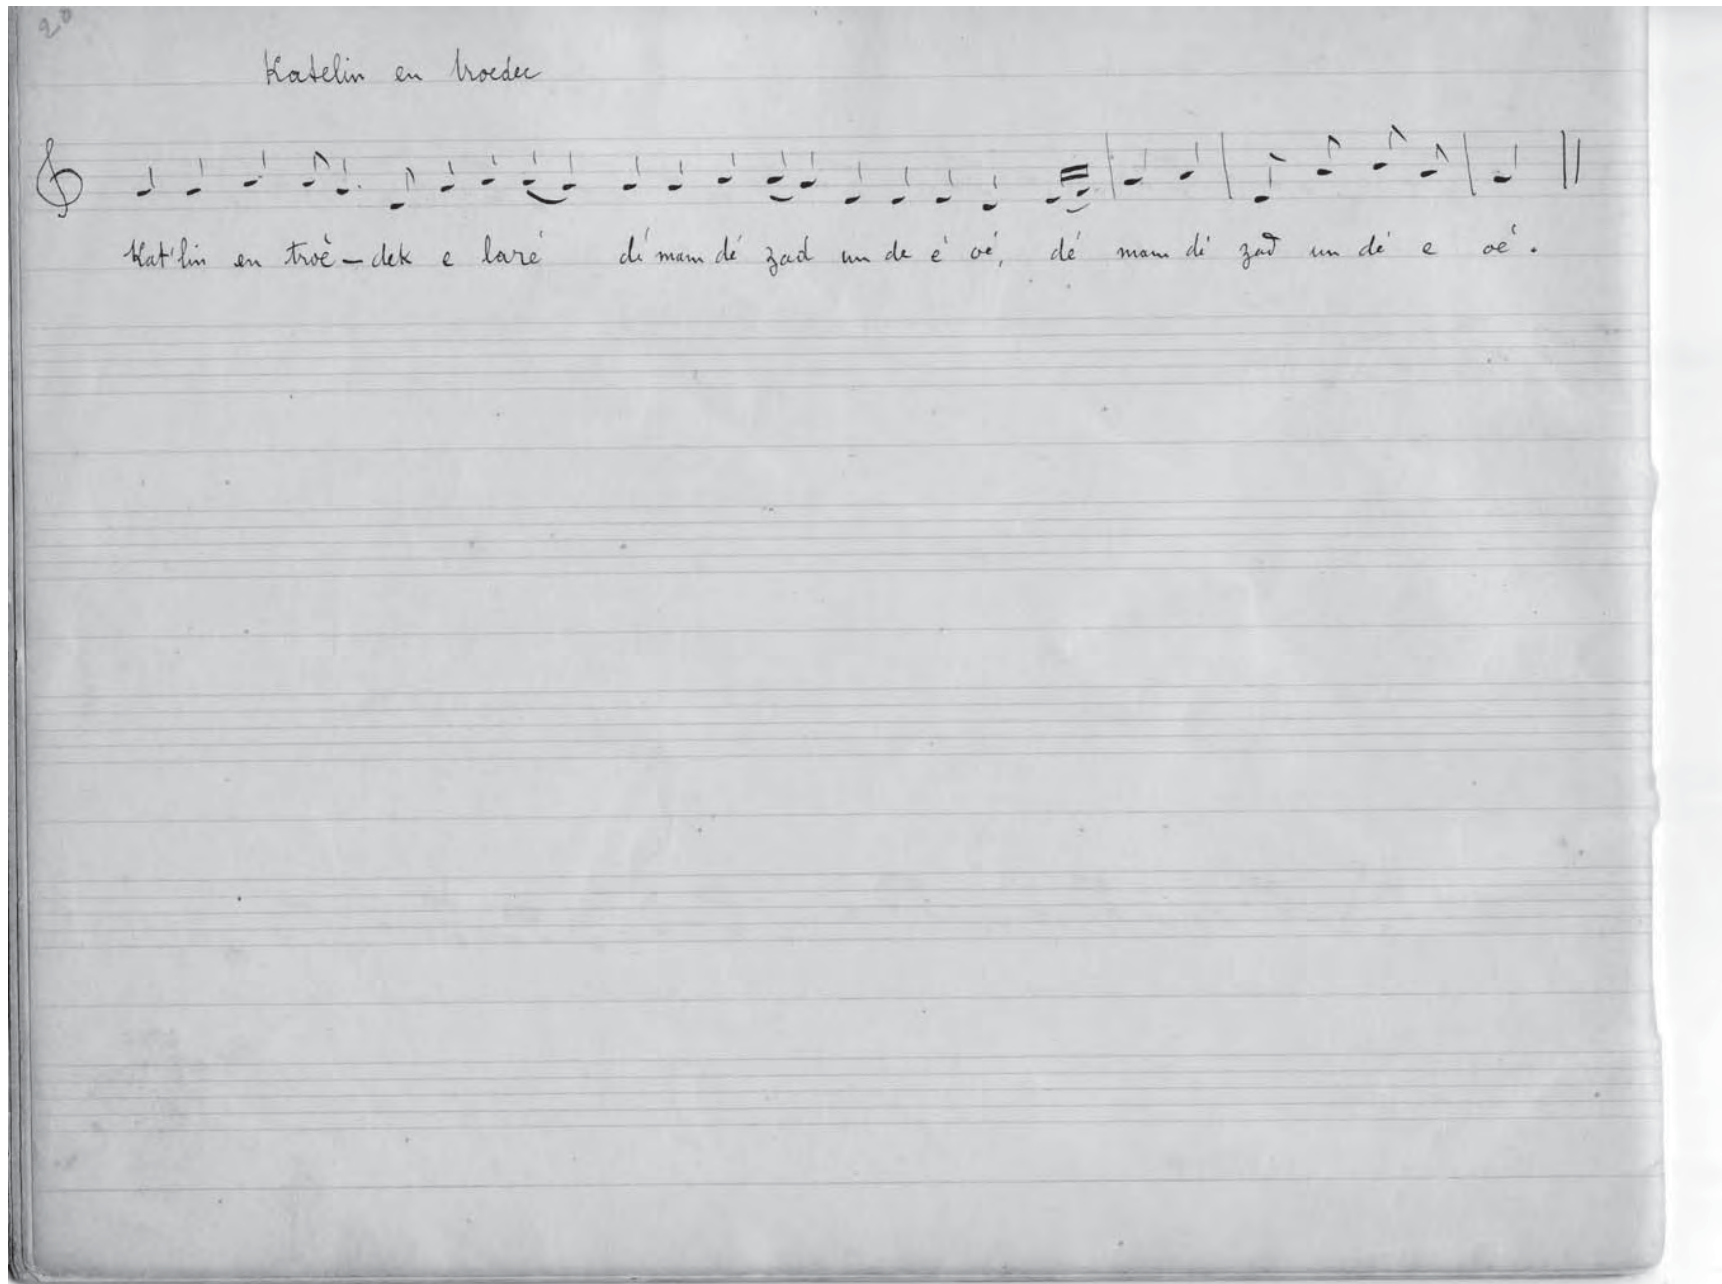 20
Katelin en troedec
Kat'lin en troè-dek e laré dé mam dé zad un de é oé, dé mam dé zad un dé e oé.